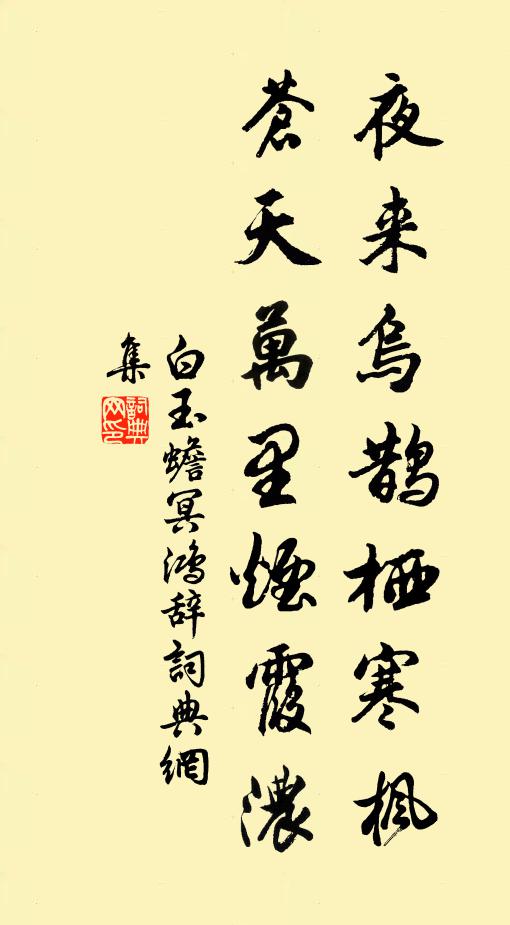 夜来烏鵲栖寒楓
蒼天萬里煙霞濃
白玉蟾冥鴻辞詞典網
集
詞典網印